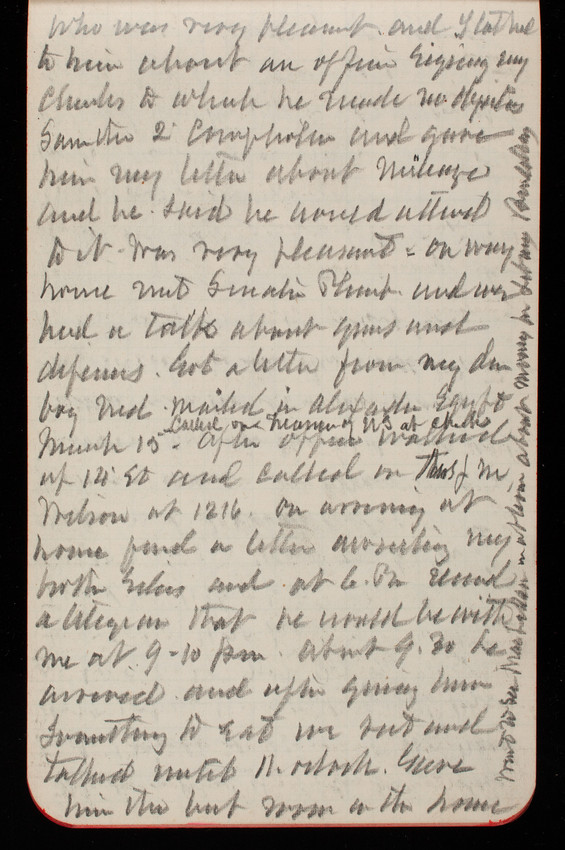 who was very pleasant and I talked
to him about an officer
Charles to which he made no
Saw the 2 and gave
him my letter about Mileage
and he said he would attend
to it was very pleasant - on way
home met Senator Plumb and we
had a talk about guns and
defenses. Got a letter from my dear
boy Ned mailed in Alexandria Egypt
Called on Treasurer of US at
March 15 - After office walked
up 14 St and called on Thos J M
Wilson at 1216. On arriving at
home find a letter my
brother and at 6 Pm
a telegram that he would be with
me at 9-10 pm. About 9.30 he
arrived and after giving him
Something to eat we sat and
talked until 11 oclock. Gave
him the best room in the house
Went to see about money for